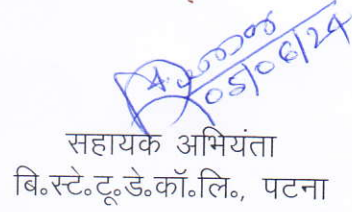 05/06/24
सहायक अभियंता
बि॰स्टे॰टू॰डे॰कॉ॰लि॰, पटना